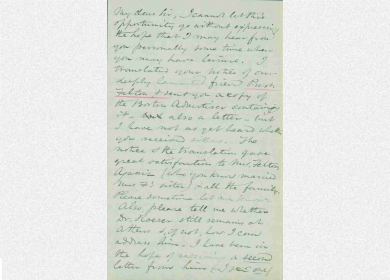 My dear Sir, I cannot let this
opportunity go without expressing
the hope that I may hear from
you personally some time when
you may have leisure. I
translated your notice of our
deeply lamented friend Prest.
Felton & sent you a copy of
the Boston Advertiser containing
it and also a letter but
I have not as yet heard
you received The
notice & the translation gave
great satisfaction to Mrs. Felton,
Agassiz (who you know married
Mrs. F's sister) & all the family.
Please sometime let me
Also please tell me whether
Dr. Roeser still remains at
Athens &, if not, how I can
address him. I have been in
the hope of receiving a second
letter from him